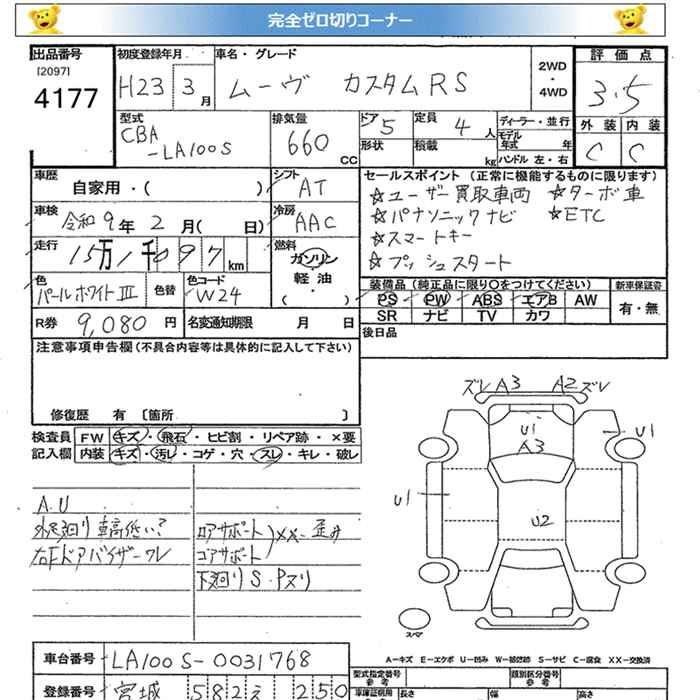 完全ゼロ切りコーナー
出品番号
[2097]
4177
初度登録年月
H23 3月
車名・グレード
ムーヴ カスタムRS
2WD・4WD
評価点
3.5
外装 内装
C C
型式
CBA
-LA100S
排気量
660 CC
ドア 5
形状
定員 4 人
積載 kg
ディーラー・並行
モデル年式 年
ハンドル 左・右
車歴
自家用・( )
シフト
AT
車検
令和9年2月( 日)
冷房
AAC
走行
15万1千097 km
燃料
ガソリン・軽油・( )
色
パールホワイトIII
色替
色コード
W24
R券 9,080円
名変通知期限 月 日
セールスポイント(正常に機能するものに限ります)
☆ユーザー買取車両 ☆ターボ車
☆パナソニックナビ ☆ETC
☆スマートキー
☆プッシュスタート
装備品(純正品に限り〇をつけてください)
PS PW ABS エアB AW
SR ナビ TV カワ
新車保証書
有・無
後日品
注意事項申告欄(不具合内容等は具体的に記入して下さい)
修復歴 有〔箇所 〕
検査員記入欄
FW キズ・飛石・ヒビ割・リペア跡・×要
内装 キズ・汚レ・コゲ・穴・スレ・キレ・破レ
A.U
外足廻り車高低い?
右Fドアバイザーワレ
ロアサポート
コアサポート
XX-歪み
下廻りS・Pヌリ
ズレ A3 A2 ズレ
U1
A3
U1
U1
U2
スペア
A-キズ E-エクボ U-凹み W-補修跡 S-サビ C-腐食 XX-交換済
車台番号 LA100S-0031768
登録番号 宮城 582 え 250
型式指定番号
参考
類別区分番号
参考
車庫証明用
参考
長さ 幅 高さ